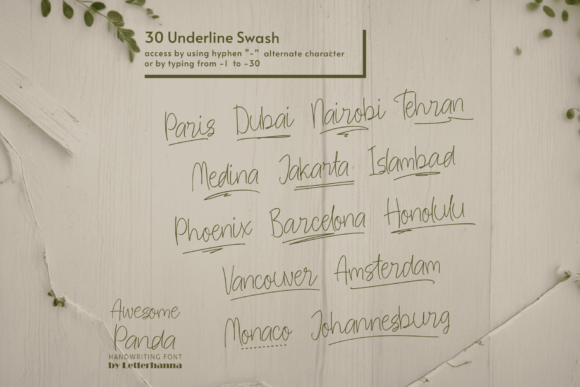 30 Underline Swash
access by using hyphen "-" alternate character
or by typing from -1 to -30
Paris Dubai Nairobi Tehran
Medina Jakarta Islambad
Phoenix Barcelona Honolulu
Vancouver Amsterdam
Monaco Johannesburg
Awesome
Panda
HANDWRITING FONT
by Letterhanna